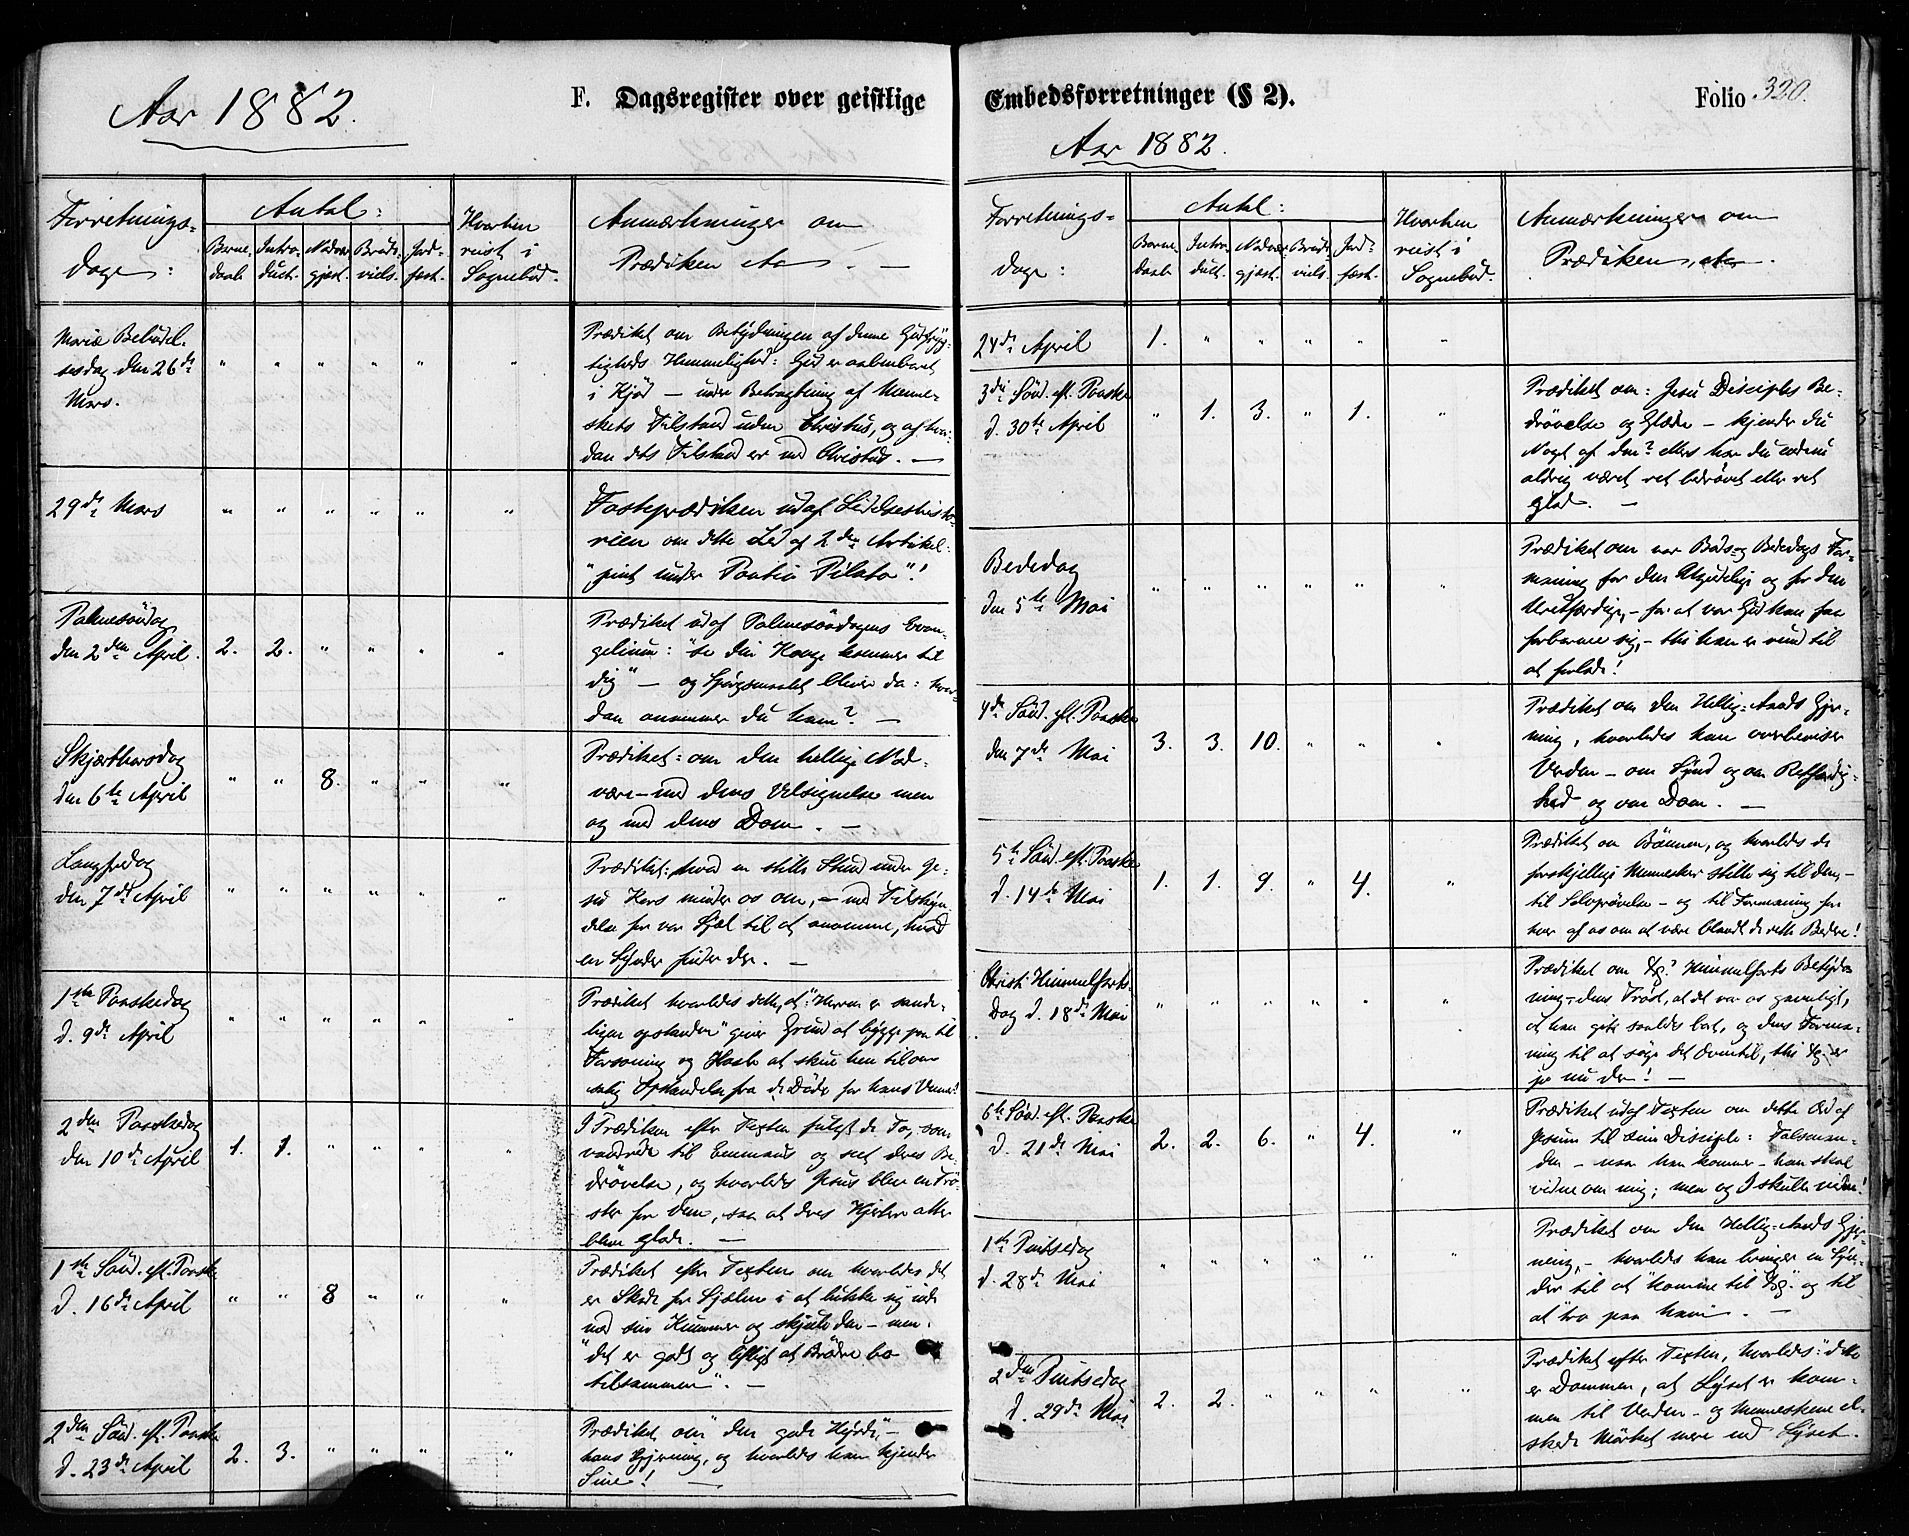 Aar 1882.
F. Dagsregister over geistlige
Forretnings-
dage:
Antal:
Barne
daab.
Intro-
duct.
Nadver
gjest.
Brude
viels.
Jord-
fæst.
Hvorhen
reist i
Sognebud.
Anmærkninger om
Prædiken &c. —
Mariæ Bebudel-
sesdag den 26de
Mars.
" " " " " "
Prædiket om Betydningen af denne Gudfrygt-
tigheds Hemmelighed: Gud er aabenbaret
i Kjød — under Betragtning af Menne-
skets Tilstand uden Christus, og af hvor-
dan dets Tilstand er med Christus. —
29de Mars
" " " " " "
Fasteprædiken ud af Lidelseshisto-
rien om dette Led af 2den Artikel:
"pint under Pontio Pilato"!
Palmesøndag
den 2den April.
2. 2. " " " "
Prædiket ud af Palmesøndagens Evan-
gelium: "se din Konge kommer til
dig" — og Spørgsmaalet bliver da: hvor-
dan anammer du ham? —
Skjærthorsdag
den 6te April
" " 8. " " "
Prædiket: om den hellige Nad-
vere — med dens Velsignelse men
og med dens Dom. —
Langfredag
den 7de April
" " " " " "
Prædiket: hvad en stille Stund under Je-
su Kors minder os om, — med Tilskyn-
delse for vor Sjæl til at anamme, hvad
en Synder finder der. —
1ste Paaskedag
d. 9de April
" " " " " "
Prædiket hvorledes dette, at: "Herren er sande-
ligen opstanden" giver Grund at bygge paa til
Forsoning og Haab at skue hen til om
salig Opstandelse fra de Døde for hans Venner!
2den Paaskedag
den 10de April
1. 1. " " " "
I Prædiken efter Texten fulgt de To, som
vandrede til Emmaus og seet deres Be-
drøvelse, og hvorledes Jesus blev en Trø-
ster for dem, saa at deres Hjerter atter
bleve glade. —
1ste Sønd. eft. Paaske
d. 16de April
" " 8 " " "
Prædiket efter Texten om hvorledes det
er Skade for Sjælen i at lukke sig inde
med sin Kummer og skjule den — men:
"det er godt og lifligt at Brødre bo
tilsammen". —
2den Sønd. eft. Paaske
d. 23de April
2. 3. " " " "
Prædiket om "den gode Hyrde", —
hans Gjerning, og hvorledes han kjender
Sine!
Embedsforretninger (§ 2).
Folio 320.
Aar 1882.
Forretnings-
dage:
Antal:
Barne
daab.
Intro-
duct.
Nadver
gjest.
Brude
viels.
Jord-
fæst.
Hvorhen
reist i
Sognebud.
Anmærkninger om
Prædiken, etc.
24de April
1. " " " " "
3die Sønd. eft. Paaske
d. 30te April
" 1. 3. " 1. "
Prædiket om: Jesu Disciples Be-
drøvelse og Glæde — kjender du
Noget af den? ellers har du endnu
aldrig været ret bedrøvet eller ret
glad. —
Bededag
den 5te Mai
" " " " " "
Prædiket om vor Bods- og Bededags For-
maning for den Ugudelige og for den
Uretfærdige, — for at vor Gud kan faa
forbarme sig, — thi han er rund til
at forlade!
4de Sønd. eft. Paaske
den 7de Mai
3. 3. 10. " " "
Prædiket om den Hellig-Aands Gjer-
ning, hvorledes han overbeviser
Verden — om Synd og om Retfærdig-
hed og om Dom. —
5te Sønd. eft. Paaske
d. 14de Mai
1. 1. 9. " 4. "
Prædiket om Bønnen, og hvorledes de
forskjellige Mennesker stille sig til den, —
til Selvprøvelse — og til Formaning for
hver af os om at være blandt de rette Bedere!
Christi Himmelfarts
Dag d. 18de Mai
" " " " " "
Prædiket om Xp. Himmelfarts Betyd-
ning — dens Trøst, at det var os gavnligt,
at han gik saaledes bort, og dens Forma-
ning til at søge det oventil, thi Xp. er
jo nu der! —
6te Sønd. eft. Paaske
d. 21de Mai
2. 2. 6. " 4. "
Prædiket ud af Texten om dette Ord af
Jesum til sine Disciple: Talsman-
den — naar han kommer — han skal
vidne om mig; men og I skulle vidne!
1ste Pintsedag
d. 28de Mai
" " " " " "
Prædiket om den Hellig-Aands Gjer-
ning, — hvorledes han bringer en Syn-
der til at "komme til Xp." og til
at tro paa ham. —
2den Pintsedag
d. 29de Mai
2. 2. " " " "
Prædiket efter Texten, hvorledes: "dette
er Dommen, at Lyset er kom-
men til Verden — og Menneskene el-
skede Mørket mere end Lyset.